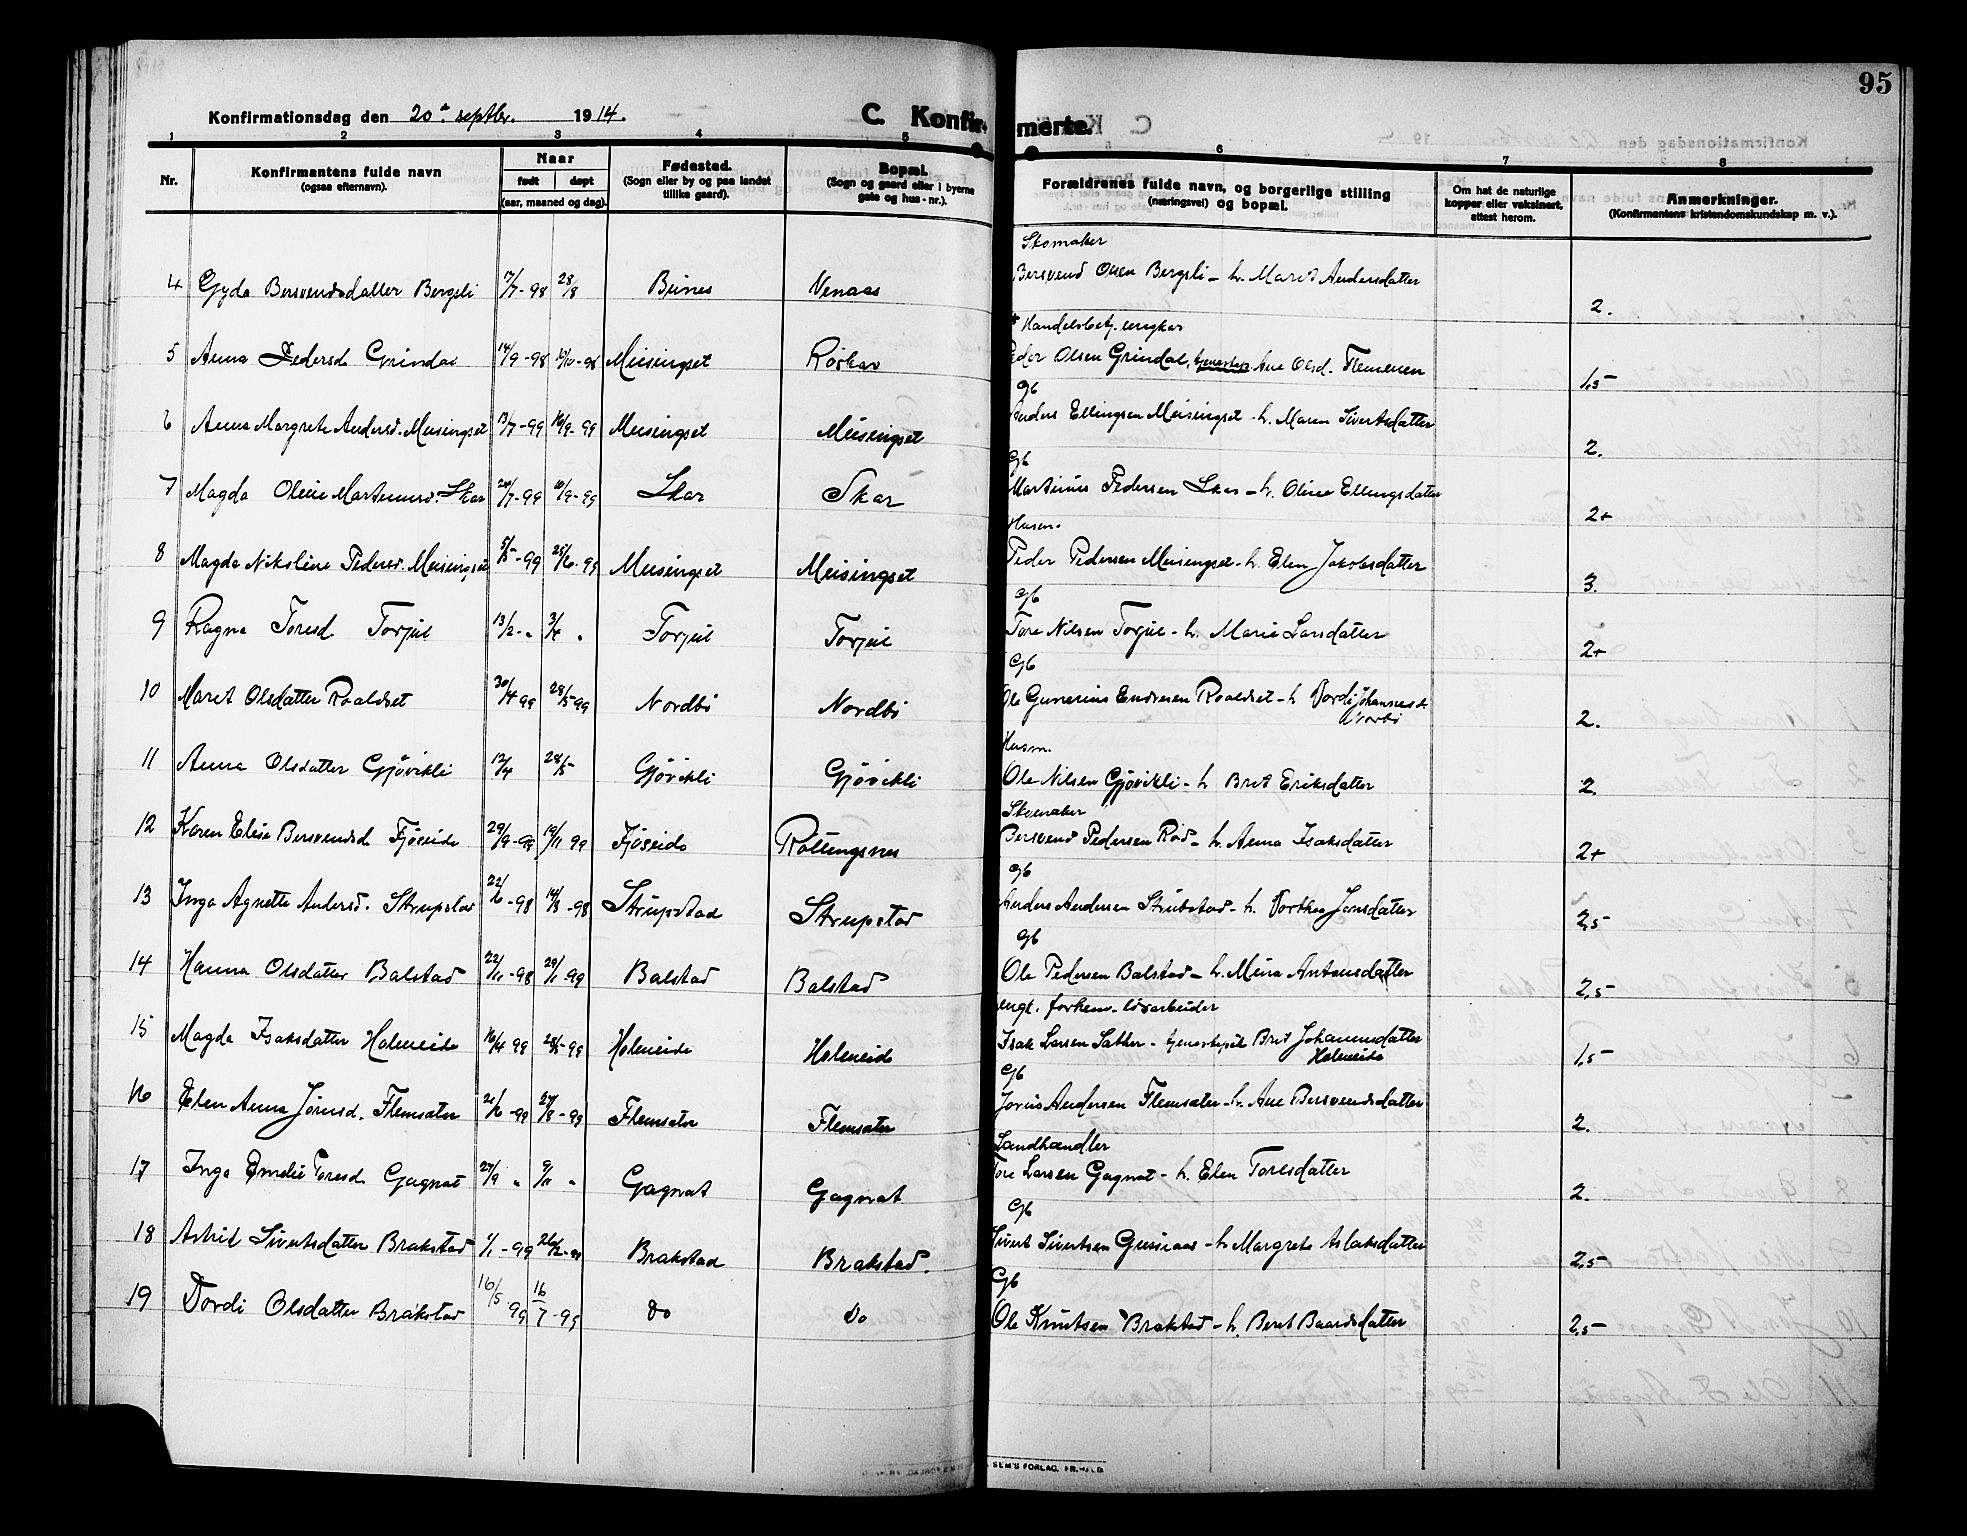 95
Konfirmationsdag den 20de septbr. 1914.
C. Konfirmerte.
1 2 3 4 5 6 7 8
Nr.
Konfirmantens fulde navn
(ogsaa efternavn).
Naar
født døpt
(aar, maaned og dag).
Fødested.
(Sogn eller by og paa landet
tillike gaard).
Bopæl.
(Sogn og gaard eller i byerne
gate og hus-nr.).
Forældrenes fulde navn, og borgerlige stilling
(næringsvei) og bopæl.
Om hat de naturlige
kopper eller vaksinert,
attest herom.
Anmerkninger.
(Konfirmantens kristendomskundskap m. v.).
Skomaker
4 Gyda Bersvendsdatter Bergsli 7/7-98 28/8 Beines Venaas Bersvend Olsen Bergsli - h. Maret Andersdatter 2.
Handelsbetj. ungkar
5 Anna Pedersd Grindal 14/9-98 Meisingset Røskar Peder Olsen Grindal, Ane Olsd. 1,5
Gb
6 Anna Margrete Andersd. Meisingset 13/7-99 10/9-99 Meisingset Meisingset Anders Ellingsen Meisingset - h. Maren Sivertsdatter 2.
Gb
7 Magda Oline Martinusd. Skar 24/7-99 10/9-99 Skar Skar Martinus Pedersen Skar - h. Oline Ellingsdatter 2+
Husm.
8 Magda Nikoline Pedersd. Meisingset 5/5-99 25/6-99 Meisingset Meisingset Peder Pedersen Meisingset - h. Elen Jakobsdatter 3.
Gb
9 Ragna Toresd Torjul 13/2-" 3/4 " Torjul Torjul Tore Nilsen Torjul - h. Marie Larsdatter 2+
Gb
10 Maret Olsdatter Roaldset 30/4 99 28/5-99 Nordbø Nordbø Ole Gunerius Endresen Roaldset - h Dordi Johannesd.
Norbø 2.
Husm.
11 Anna Olsdatter Gjøvikli 12/4 28/5 Gjøvikli Gjøvikli Ole Nilsen Gjøvikli - h Bret Eriksdatter 2.
Skomaker
12 Karen Elise Bersvendsd Fjøseide 29/9-99 19/11 99 Fjøseide Røttingsnes Bersvend Pedersen Rød - h. Anna Isaksdatter 2+
Gb
13 Inga Agnette Andersd. Strupstad 22/6-98 14/8-98 Strupstad Strupstad Anders Andersen Strubstad - h. Dorthea Jonsdatter 2,5
Gb
14 Hanna Olsdatter Balstad 22/11-98 29/1-99 Balstad Balstad Ole Pedersen Balstad - h. Mina Antonsdatter 2,5
ungk. forhen. løsarbeider
15 Magda Isaksdatter Holmeide 16/4 99 28/5-99 Holmeide Holmeide Isak Larsen Sæther - tjenestepik Bret Johannesdatter
Holmeide 1,5
Gb
16 Elen Anna Jørnsd. Flemsæter 21/6-99 27/8-99 Flemsæter Flemsæter Andersen Flemsæter - h. Ane Bersvendsdatter 2.
Landhandler
17 Inga Emelie Toresd Gagnat 27/9 " 9/11 " Gagnat Gagnat Tore Larsen Gagnat - h. Elen Toresdatter 2.
Gb
18 Astrid Sivertsdatter Brakstad 1/1-99 26/2-99 Brakstad Brakstad. Sivert Sivertsen - h Margrete Aslaksdatter 2,5
Gb
19 Dordi Olsdatter Brakstad 16/5 99 16/7-99 Do Do Ole Knutsen Brakstad - h. Beret Baardsdatter 2,5
SEM'S FORLAG, FR.HALD.